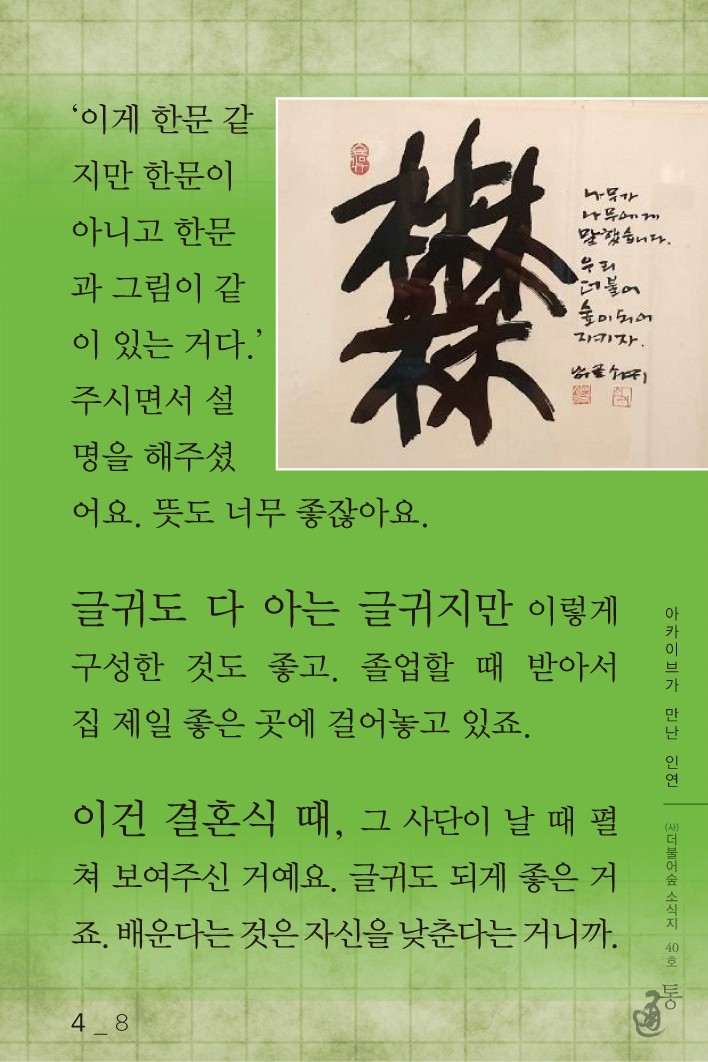 ‘이게 한문 같
지만 한문이
아니고 한문
과 그림이 같
이 있는 거다.’
주시면서 설
명을 해주셨
어요. 뜻도 너무 좋잖아요.
나무가
나무에게
말했습니다.
우리
더불어
숲이되어
지키자.
글귀도 다 아는 글귀지만 이렇게
구성한 것도 좋고. 졸업할 때 받아서
집 제일 좋은 곳에 걸어놓고 있죠.
이건 결혼식 때, 그 사단이 날 때 펼
쳐 보여주신 거예요. 글귀도 되게 좋은 거
죠. 배운다는 것은 자신을 낮춘다는 거니까.
아카이브가 만난 인연
(사)더불어숲 소식지 40호 통
4 _ 8